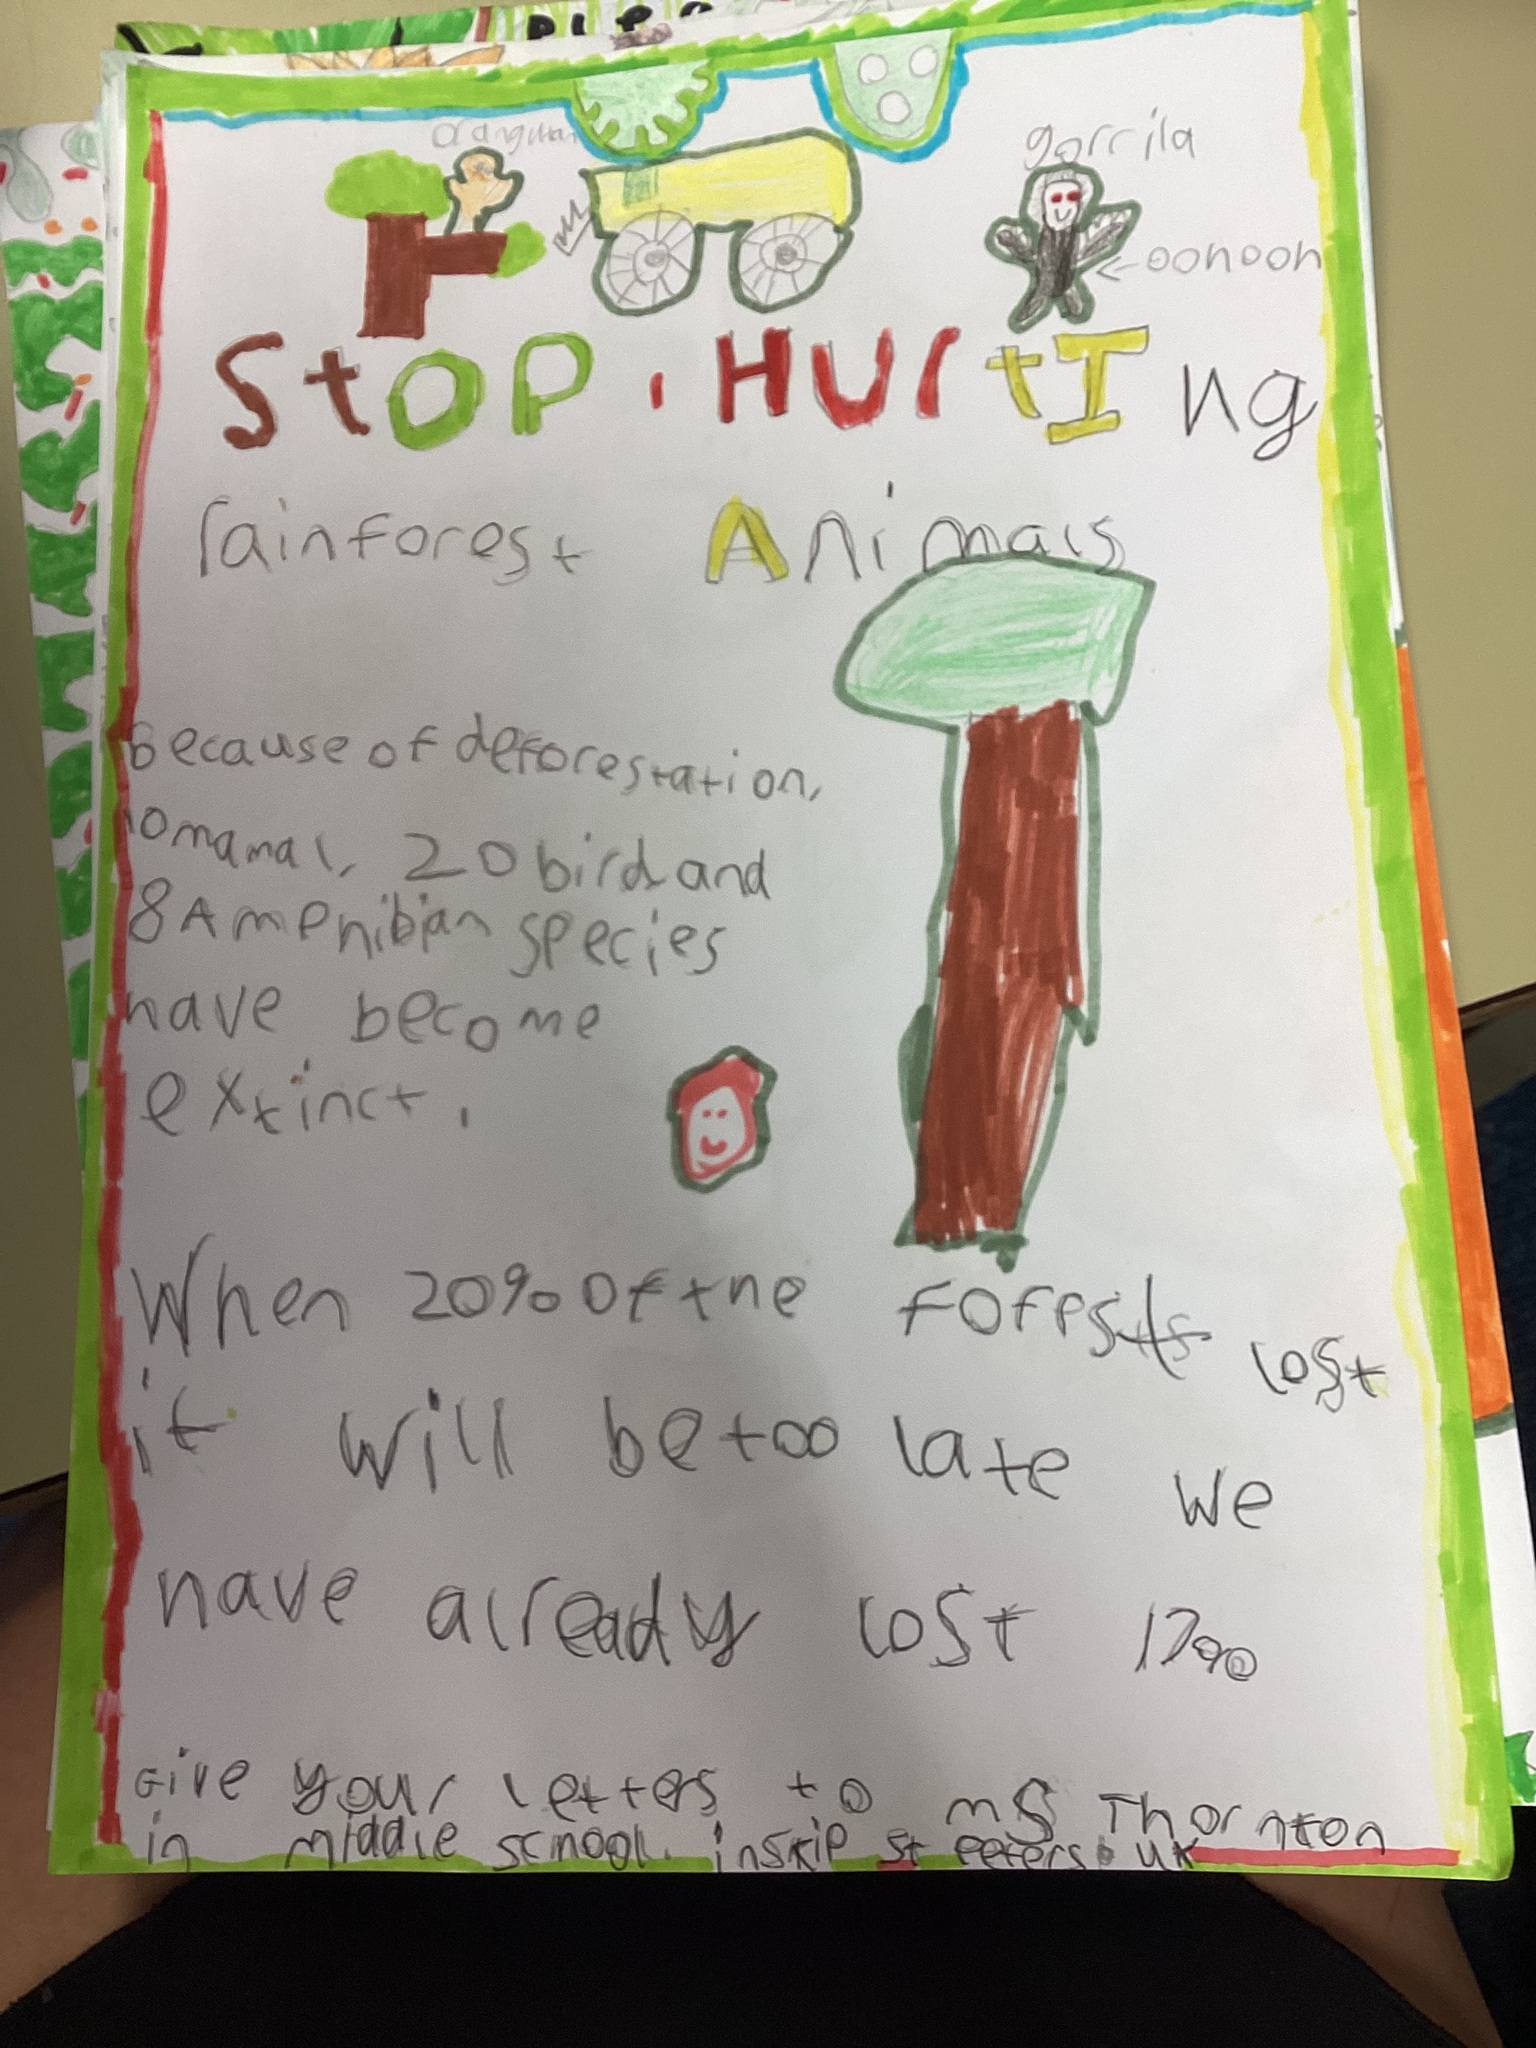 orangutan
gorrila
oohooh
StOP . HUrtIng
rainforest Animals
Because of deforestation,
10 mamal, 20 bird and
8 Amphibian species
have become
extinct.
When 20% of the forests lost
it will be too late we
have already lost 17%
Give your letters to ms Thornton
in middle school. inskip st peters uk